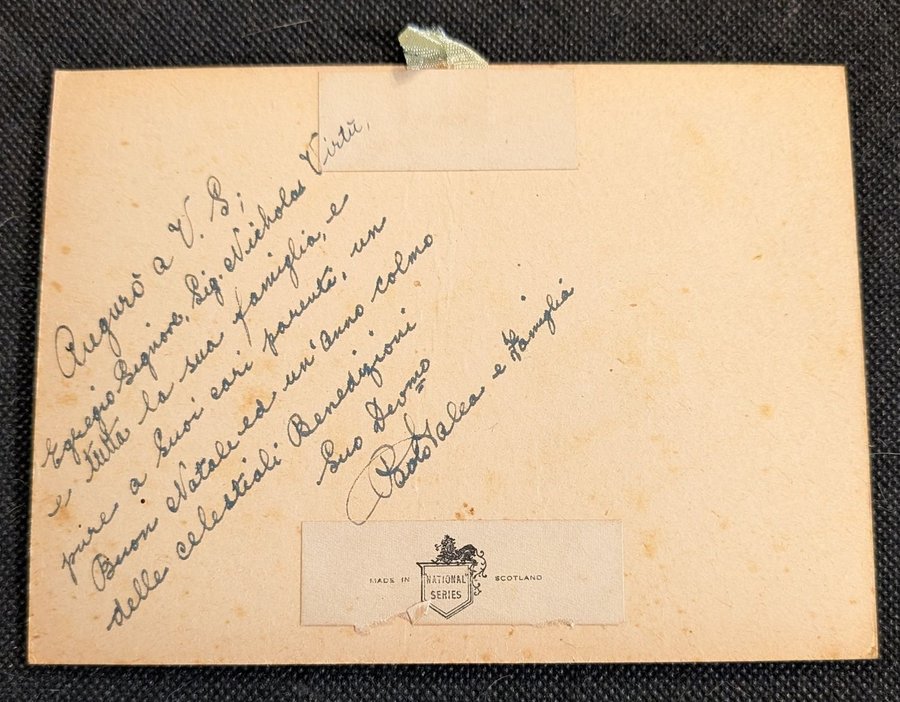 Augurò a V. S;
Egregio Signore, Sig. Nicholas Virtù,
e tutta la sua famiglia, e
pure a suoi cari parenti, un
Buon Natale ed un'anno colmo
delle celestiali Benedizioni
Suo Devmo
Paolo e Famiglia
MADE IN "NATIONAL" SERIES SCOTLAND